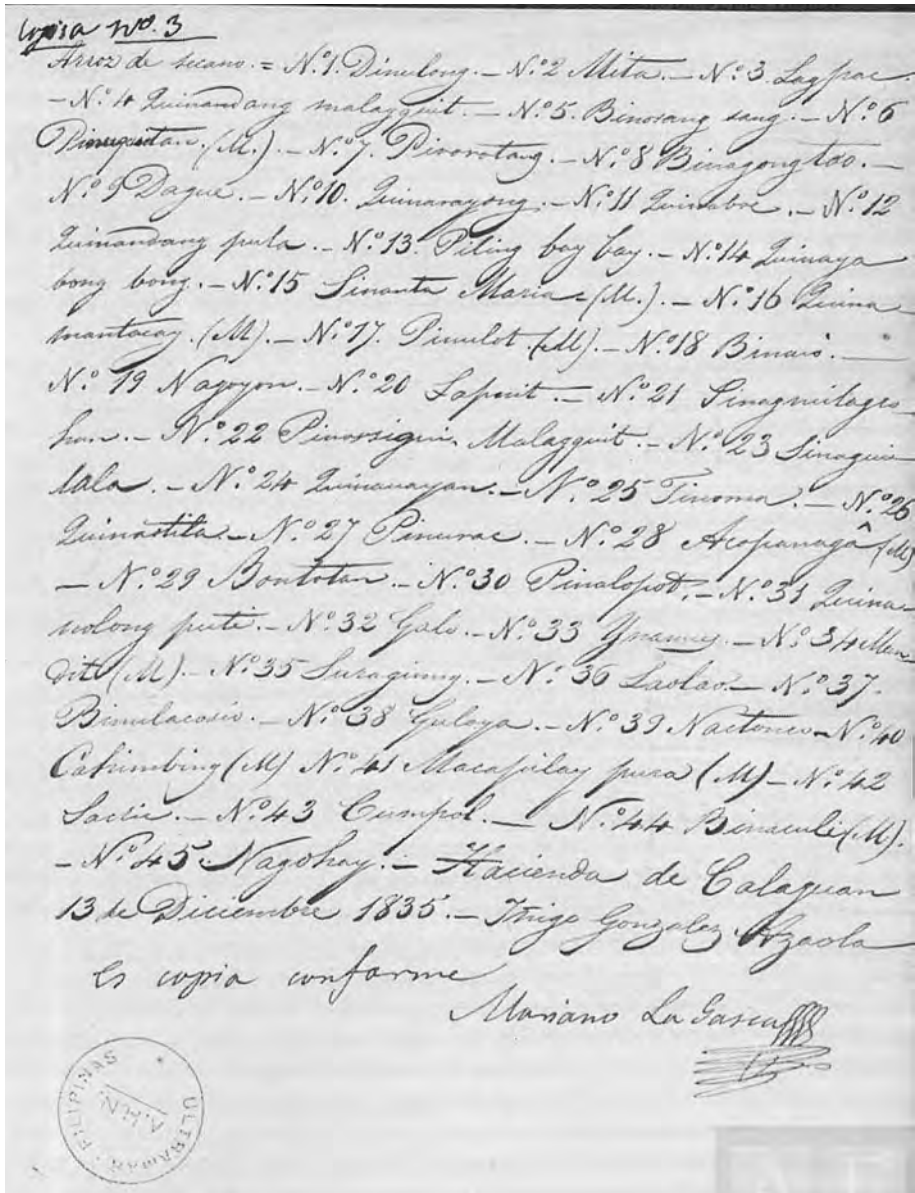 Copia nº. 3
Arroz de secano. = N.º 1. Dinulong. — N.º 2 Mita. — N.º 3. Lagpac.
— N.º 4 Quinandang malagquit. — N.º 5. Binosang sang. — N.º 6
(M.). — N.º 7. Pinorotang. — N.º 8 Binagongtao. —
N.º 9 Dague. — N.º 10. Quinarayong. — N.º 11 Quinabre. — N.º 12
Quinandang pula. — N.º 13. Piling bay bay. — N.º 14 Quinaya
bong bong. — N.º 15 Sinanta Maria = (M.). — N.º 16 Quina
mantacay. (M). — N.º 17. Pinulot. (M). — N.º 18 Binaró. —
N.º 19 Nagoyon. — N.º 20 Lapnit. — N.º 21
han. — N.º 22 Malagquit. — N.º 23 Sinagui
lala. — N.º 24 Quinauayan. — N.º 25 Tinoma. — N.º 26
Quinastila. — N.º 27 Pinurac. — N.º 28 Acopanagâ (M)
— N.º 29 Bontotan. — N.º 30 Pinalopot. — N.º 31 Quina
nolong puti. — N.º 32 Galo. — N.º 33 — N.º 34 Man
dit (M). — N.º 35 — N.º 36 Laolao. — N.º 37.
Binulacosio. — N.º 38 Gulaya. — N.º 39 — N.º 40
Cabimbing (M) N.º 41 Macapilay pusa (M) — N.º 42
— N.º 43 Cumpol. — N.º 44 Binaculi (M).
— N.º 45. Nagohay. — Hacienda de Calaguan
13 de Diciembre 1835. — Yñigo Gonzalez Azaola
Es copia conforme
Mariano La Gasca
ULTRAMAR · FILIPINAS
A.H.N.